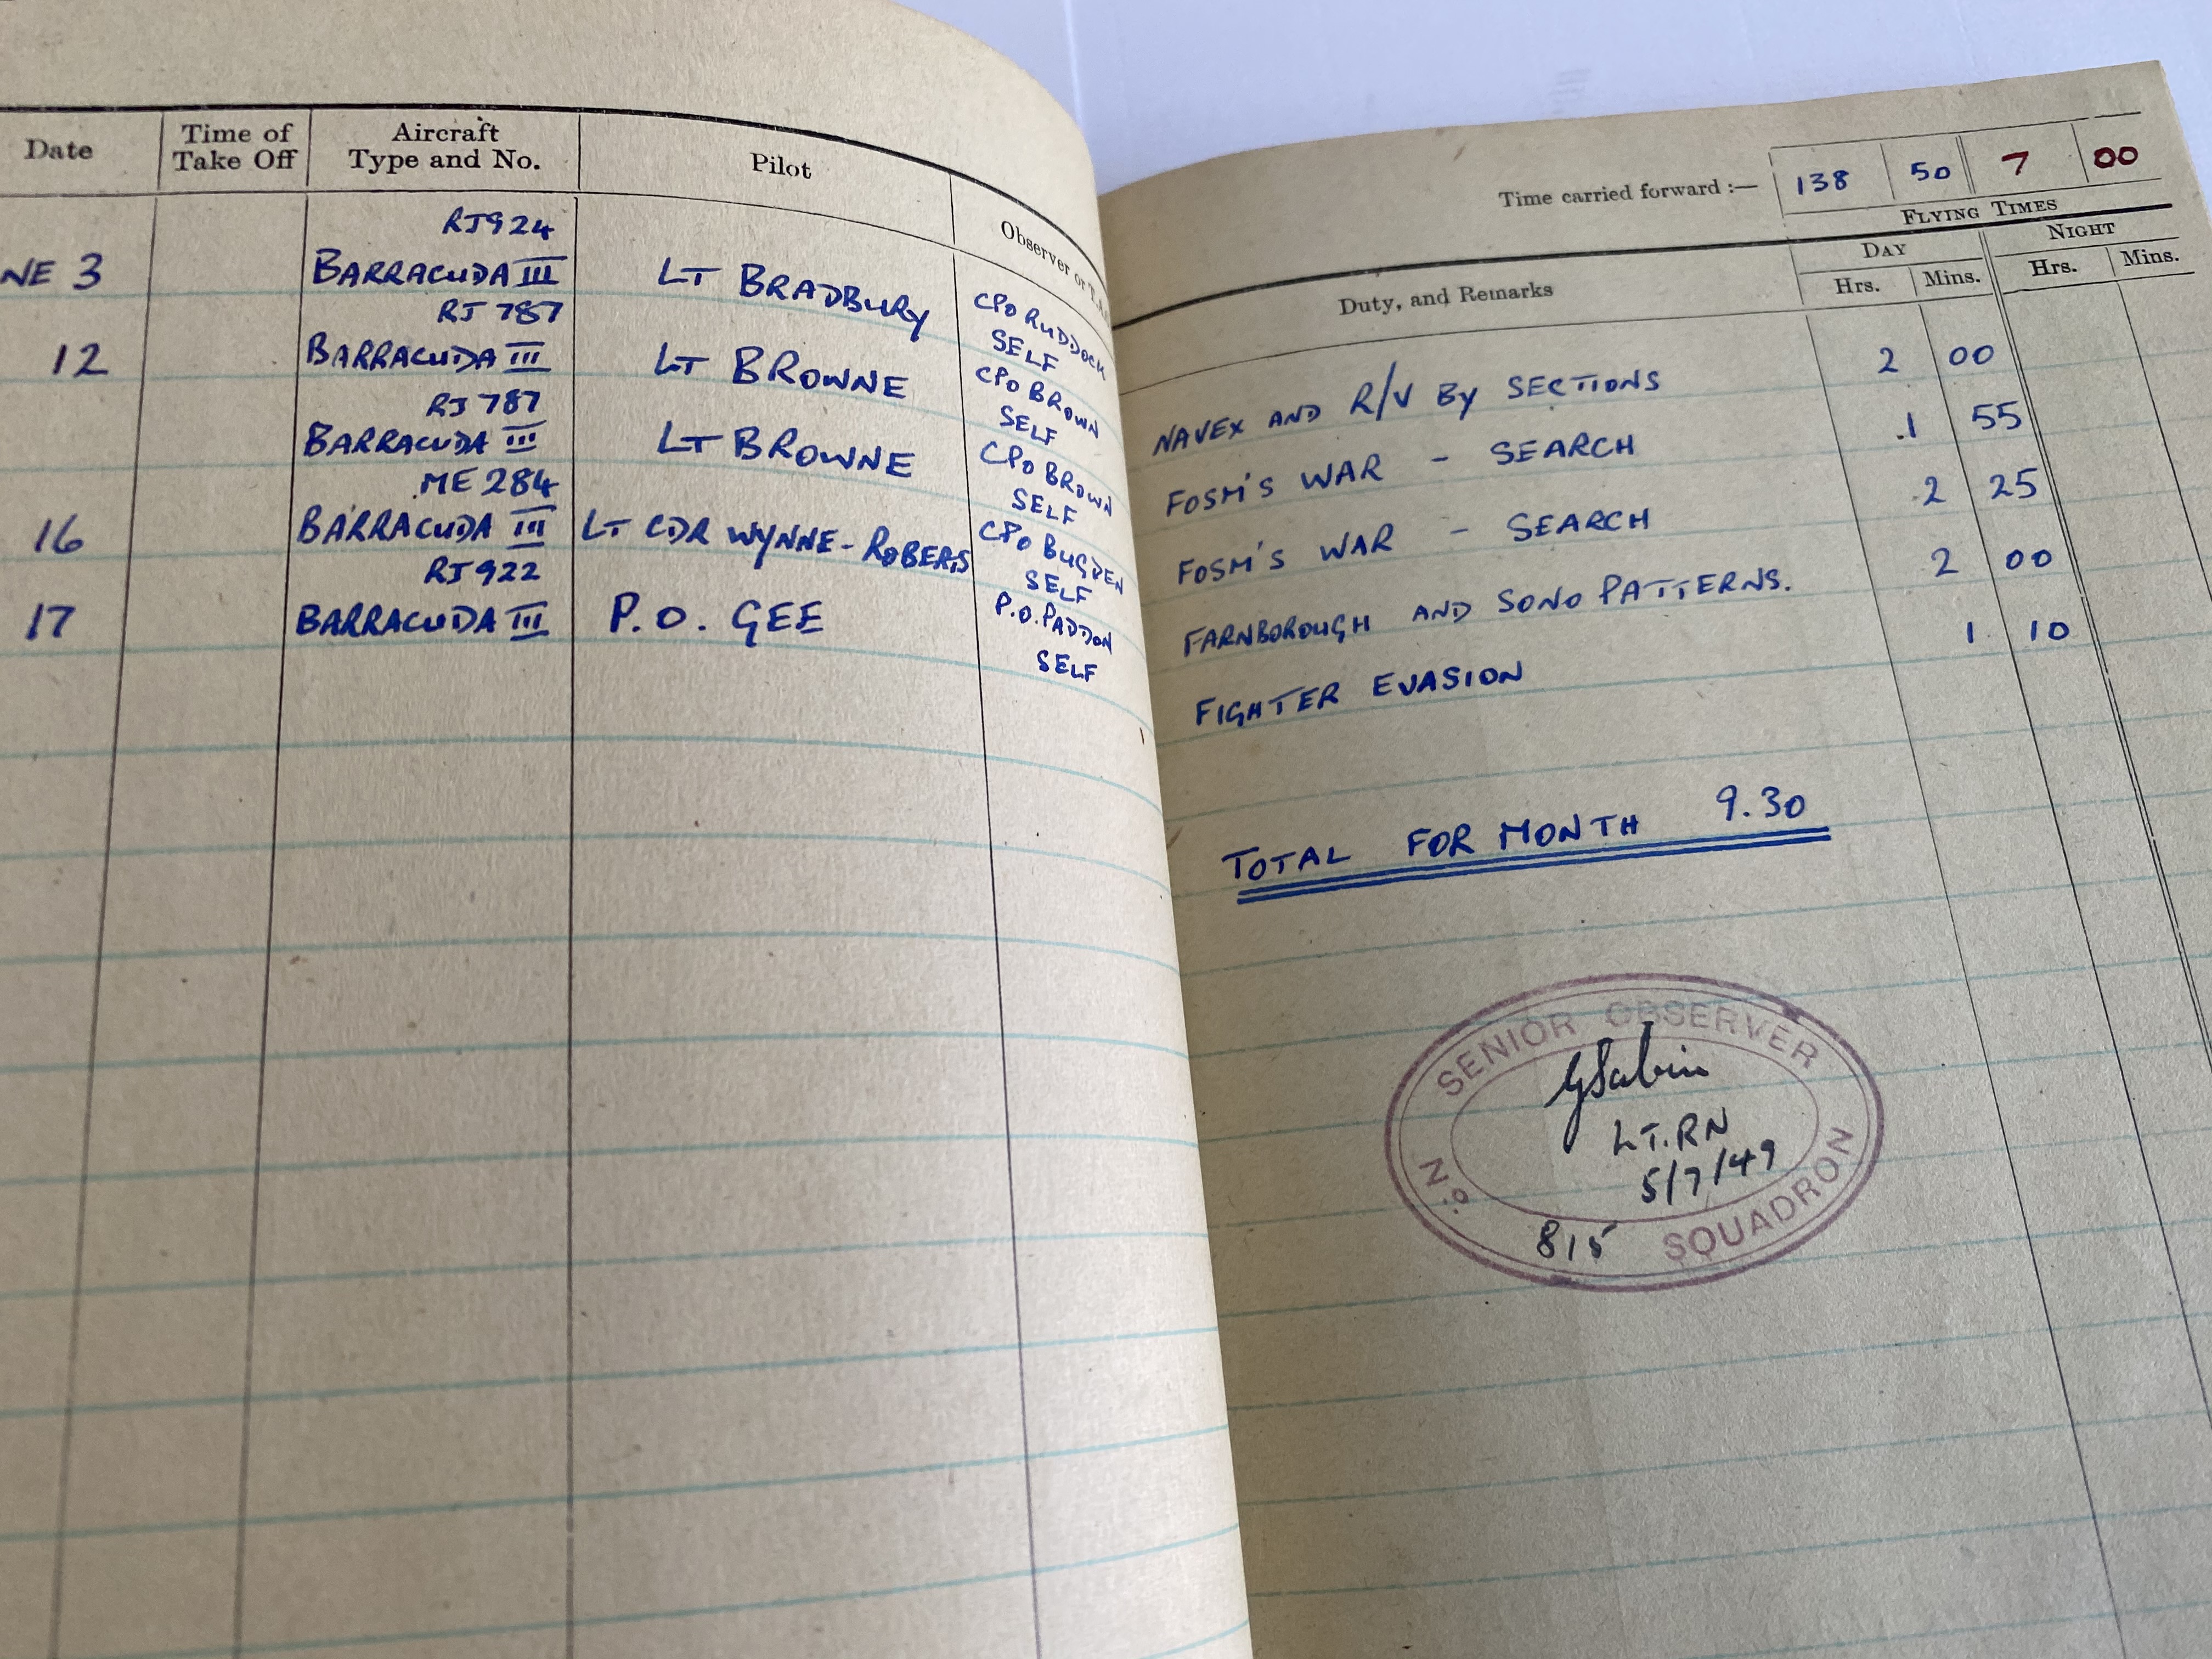 Date Time of Take Off Aircraft Type and No. Pilot Observer or T.A.
RJ924
NE 3 BARRACUDA III LT BRADBURY CPO RUDDOCK
SELF
RJ 787
12 BARRACUDA III LT BROWNE CPO BROWN
SELF
RJ 787
BARRACUDA III LT BROWNE CPO BROWN
SELF
ME 284
16 BARRACUDA III LT CDR WYNNE-ROBERTS CPO BUGDEN
SELF
RJ922
17 BARRACUDA III P.O. GEE P.O. PADDON
SELF
Time carried forward :— 138 50 7 00
FLYING TIMES
DAY NIGHT
Duty, and Remarks Hrs. Mins. Hrs. Mins.
NAVEX AND R/V BY SECTIONS 2 00
FOSM'S WAR - SEARCH 1 55
FOSM'S WAR - SEARCH 2 25
FARNBOROUGH AND SONO PATTERNS. 2 00
FIGHTER EVASION 1 10
TOTAL FOR MONTH 9.30
SENIOR OBSERVER
GSabin
LT. RN
5/7/49
No. 815 SQUADRON